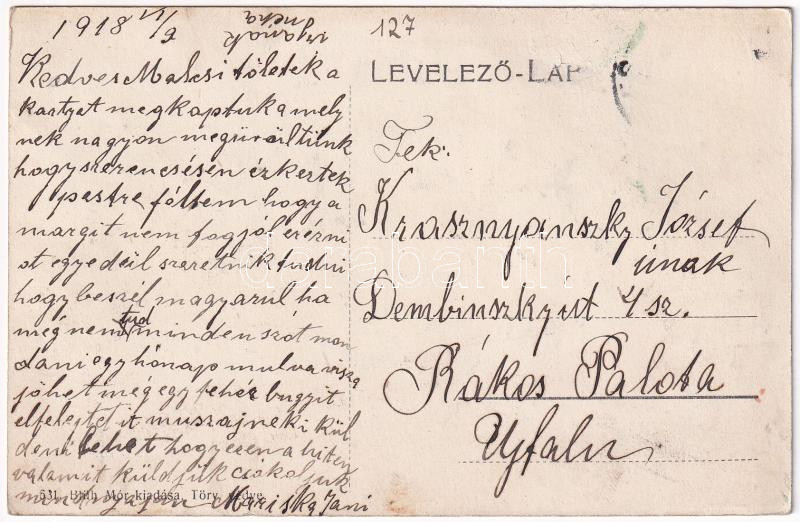 1918 VI/9
127
LEVELEZŐ-LAP
Kedves Malcsi töletek a
kartyat megkaptuk a mely
nek nagyon megürültünk
hogy szerencsésen érkeztek
pestre féltem hogy a
margit nem fog jól erérni
ot egyedéil szeretnik tudni
hogy beszél magyarul ha
még nem tud minden szót mon
dani egy hónap mulva vissza
jöhet még egy fehér bugyit
elfelejtet it muszaj neki kül
deni lehet hogy ezen a héten
valamit küldjük csokoljuk
Mariska Jani
Tek:
Krasznyánszky József
úrnak
Dembinszky út 4 sz.
Rákos Palota
Ujfalu
531. Blüh Mór kiadása, Töry. védve.
darabanth